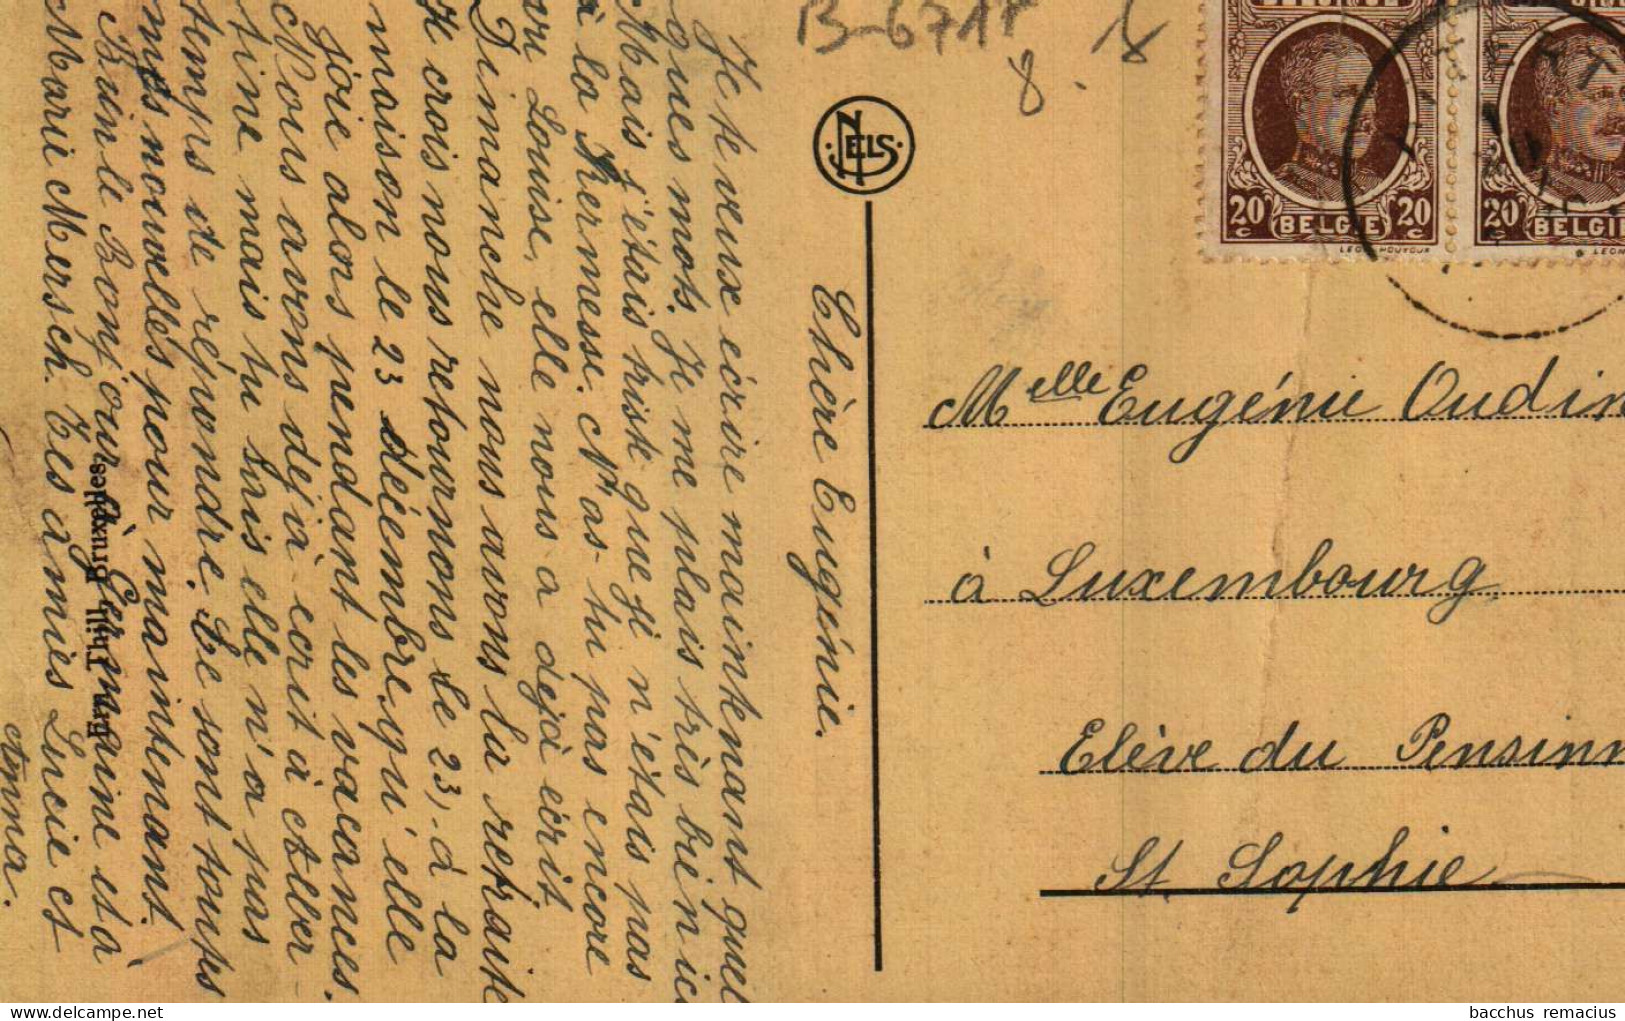 Chère Eugénie.
Je te veux écrire maintenant quel
ques mots. Je me plais très bien ici
Mais j'étais triste que je n'étais pas
à la Kermesse. N'as-tu pas encore
Louise, elle nous a déjà écrit
Dimanche nous avons la retraite
Je crois nous retournons le 23, à la
maison le 23 décembre, qu'elle
joie alors pendant les vacances.
Nous avons déjà écrit à Alber
tine mais tu sais elle n'a pas
temps de répondre. Ce sont toutes
mes nouvelles pour maintenant
Bonjour à Germaine et à
Marie Mersch. Tes amies Lucie et
Anna.
Ern. Thill, Bruxelles
NELS
B-6718
8.
20 c BELGIE 20 c
20 c BELGIE
Mlle Eugénie Oudin
à Luxembourg
Elève du Pensinn
St. Sophie
bacchus remacius